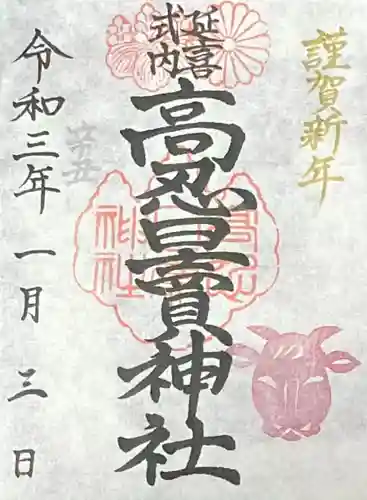 謹賀新年
延喜
式内
高忍日賣神社
辛丑
令和三年一月三日